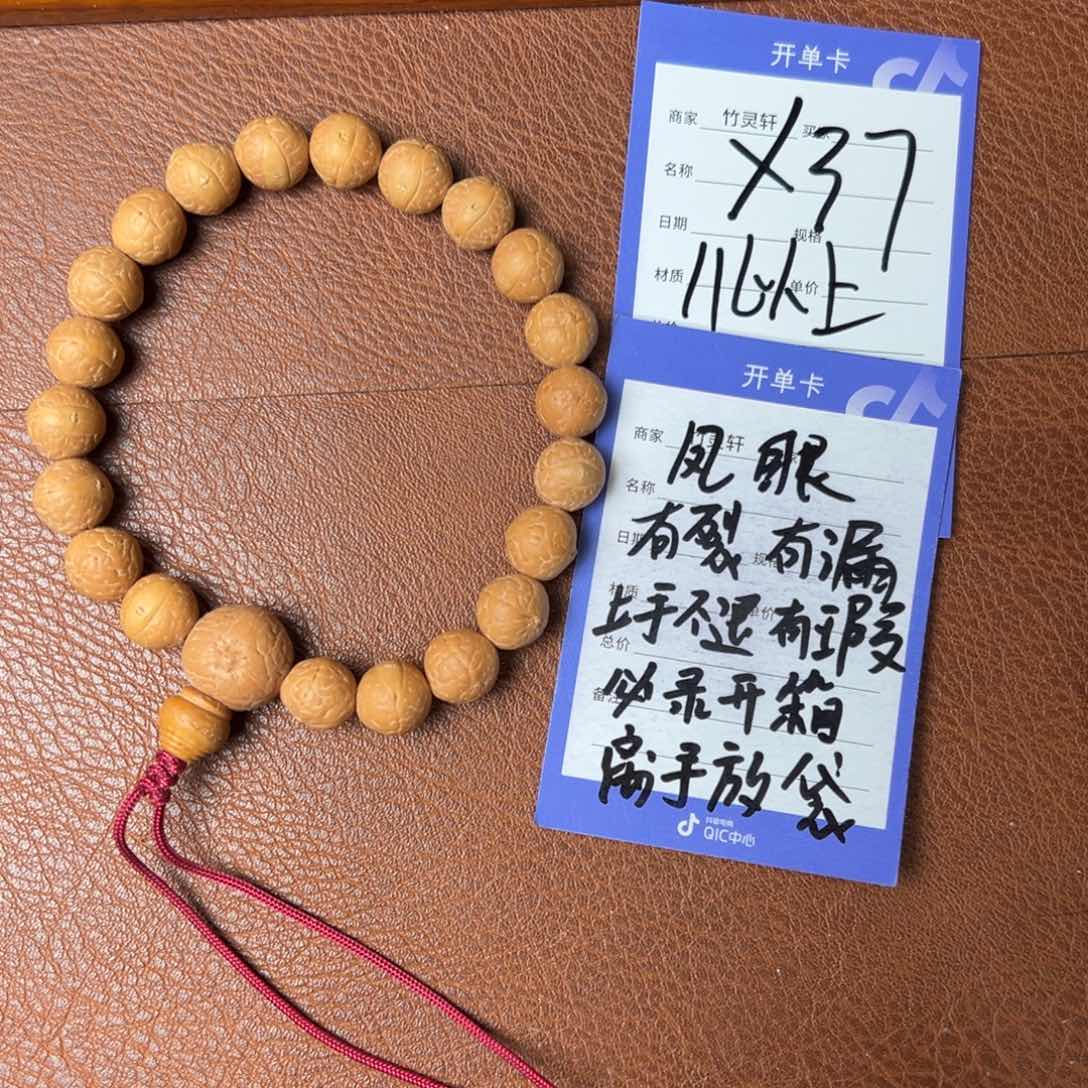 开单卡
商家 竹灵轩 买家
X37
名称
日期 规格
儿以上
材质 单价
开单卡
商家 竹灵轩
凤眼
名称
有裂 有漏
日期 规格
上手不退 有瑕
材质 单价
总价
必录开箱
备注
离手放袋
抖音电商
QIC中心